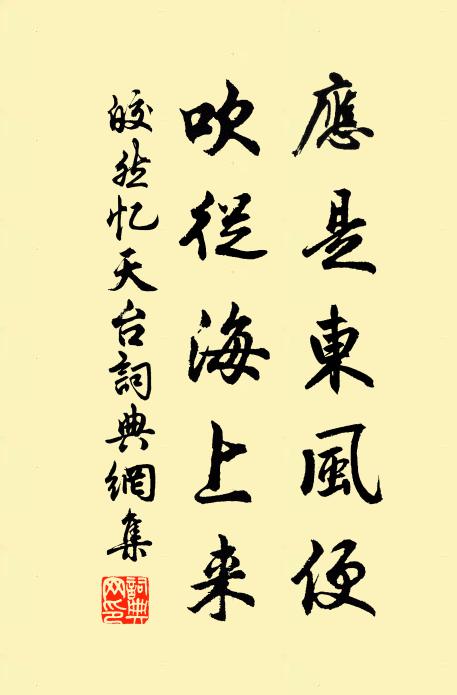 應是東風便
吹從海上来
皎然忆天台詞典網集